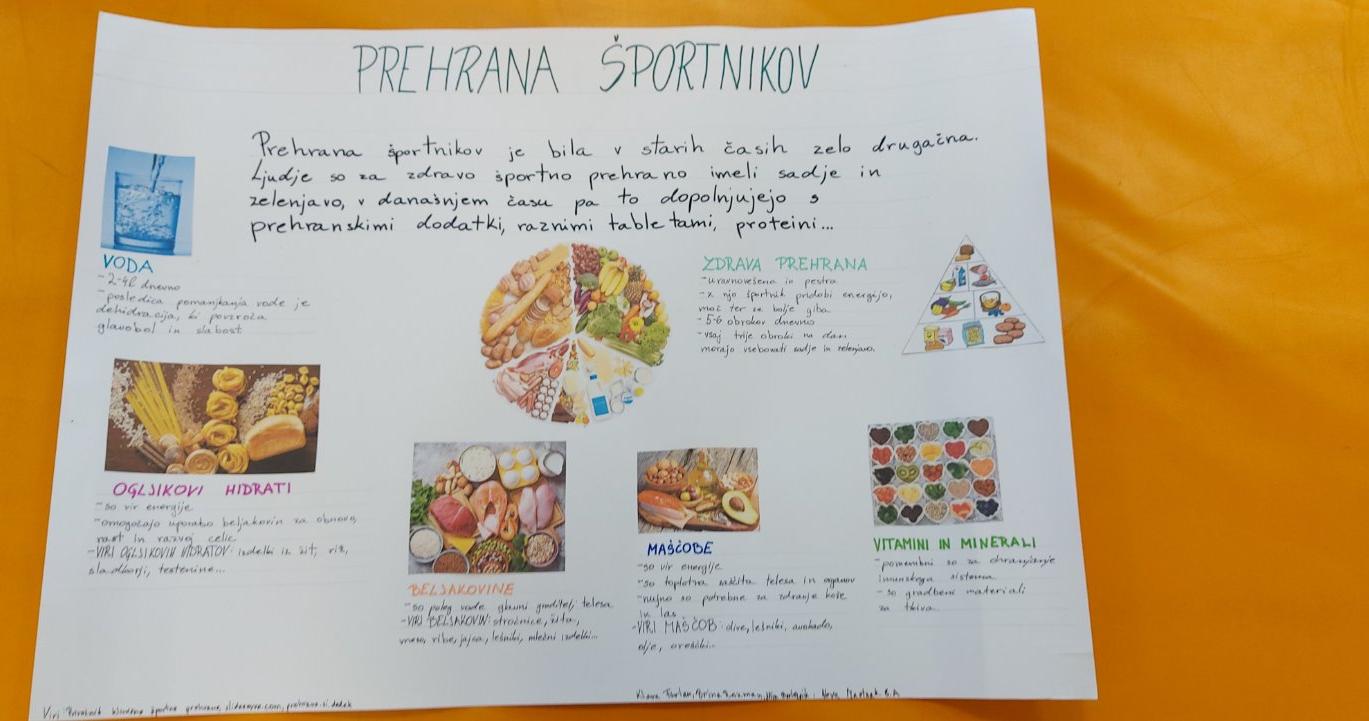 PREHRANA ŠPORTNIKOV
Prehrana športnikov je bila v starih časih zelo drugačna.
Ljudje so za zdravo športno prehrano imeli sadje in
zelenjavo, v današnjem času pa to dopolnjujejo s
prehranskimi dodatki, raznimi tabletami, proteini...
VODA
-2-4l dnevno
-posledica pomanjkanja vode je
dehidracija, ki povzroča
glavobol in slabost
ZDRAVA PREHRANA
-uravnovešena in pestra
-z njo športnik pridobi energijo,
moč ter se bolje giba
-5-6 obrokov dnevno
-vsaj trije obroki na dan
morajo vsebovati sadje in zelenjavo.
OGLJIKOVI HIDRATI
-so vir energije
-omogočajo uporabo beljakovin za obnovo,
rast in razvoj celic
-VIRI OGLJIKOVIH HIDRATOV: izdelki iz žit, riž,
sladkorji, testenine...
BELJAKOVINE
-so poleg vode glavni graditelj telesa
-VIRI BELJAKOVIN: stročnice, žita,
meso, ribe, jajca, lešniki, mlečni izdelki...
MAŠČOBE
-so vir energije
-so toplotna zaščita telesa in organov
-nujno so potrebne za zdravje kože
in las
-VIRI MAŠČOB: olive, lešniki, avokado,
olje, oreščki...
VITAMINI IN MINERALI
-pomembni so za ohranjanje
imunskega sistema
-so gradbeni materiali
za tkiva
Viri: športna prehrana, slideserve.com, prehrana.si